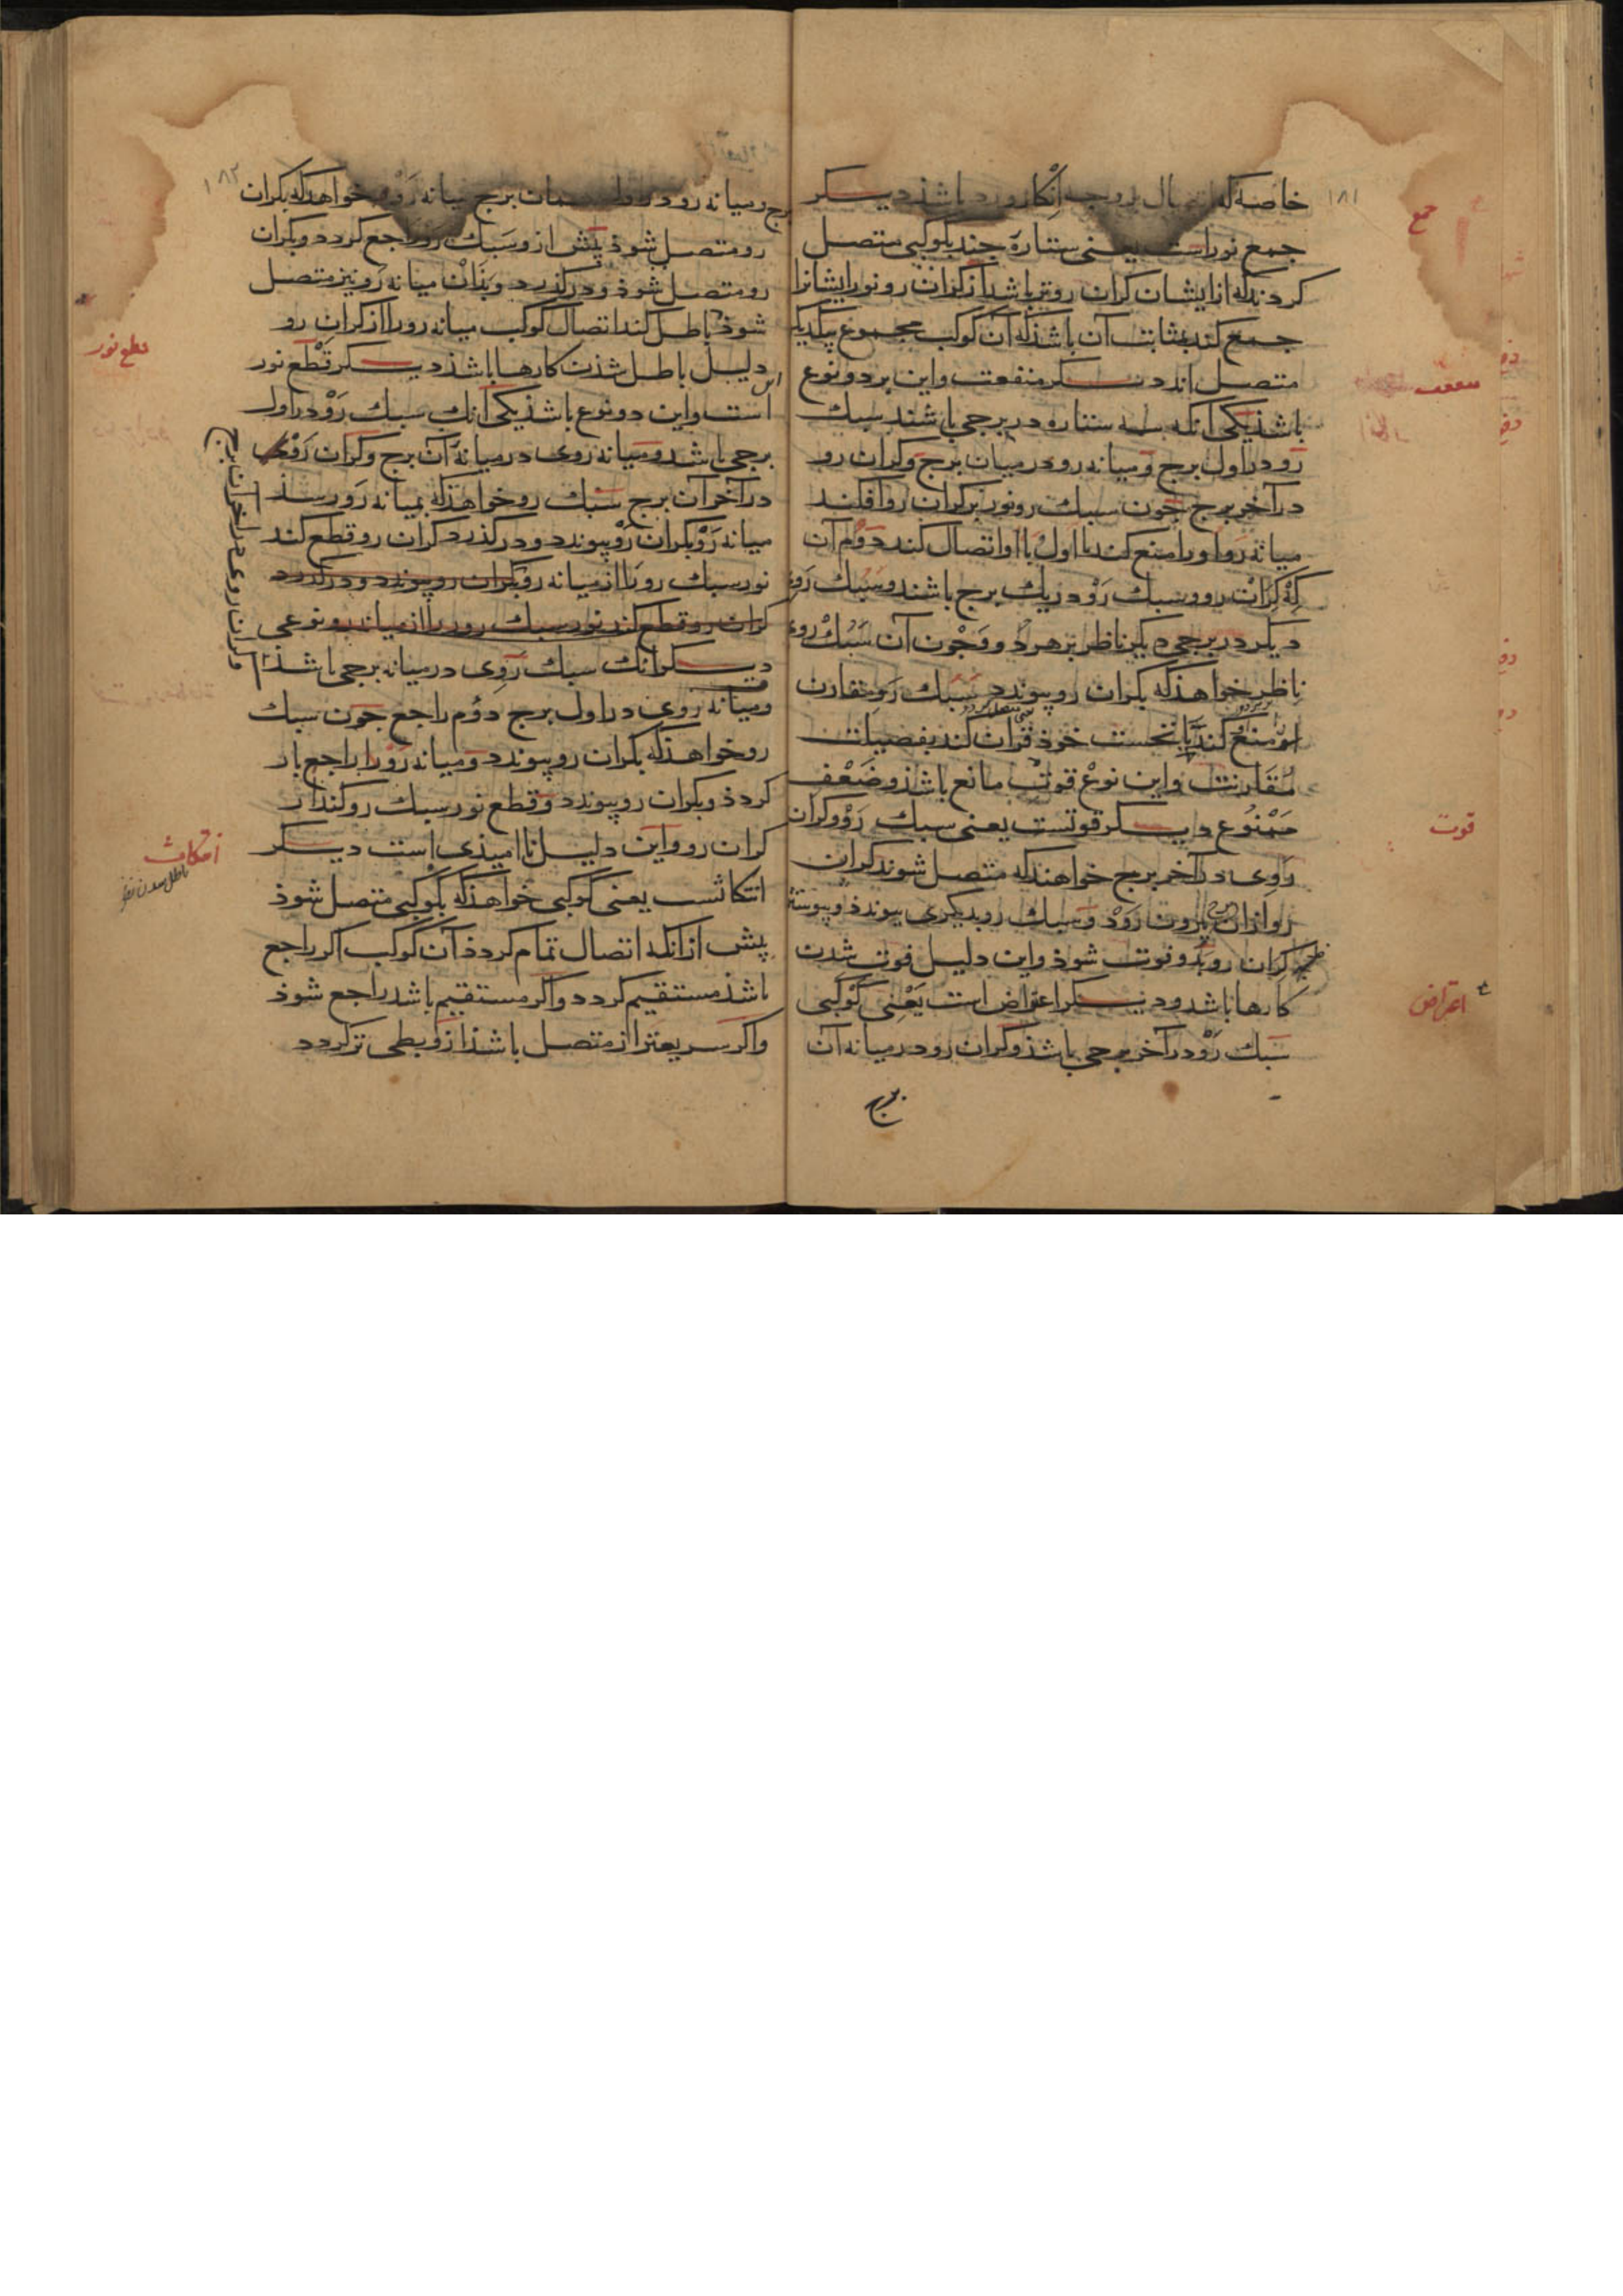 ۱۸۱
خاصه که اتصال بروجه انکار ورد باشذ دیکر
جمع
جمع نوراست یعنی ستارۀ جند بکوکبی متصل
کردند که ازایشان کران روتر باشد آن کران رو نور ایشانرا
جمع کند بمثابت آن باشذ که آن کوکب مجموع بیکدیکر
متصل اند دیکر منفعت واین بر دو نوع
باشذ یکی آنکه سه ستاره در برجی باشند سبك
رو در اول برج ومیانه رو در میان برج وکران رو
در آخر برج جون سبك رو نور بر کران رو افکند
میانه رو اورا منع کند تا اول بااو اتصال کند دوم آن
که کران رو وسبك رو در یك برج باشند وسبك روی
دیکر در برجی دیکر ناظر بر هر دو وجون آن سبك روی
ناظر خواهذ که بکران رو پیوندد سبك رو مقارن
اورا منع کند تا نخست خوذ قران کند بفضیلت
مقارنت واین نوع قوت مانع باشذ وضعف
قوت
ممنوع دیکر قوتست یعنی سبك رو وکران
روی در آخر برج خواهند که متصل شوند کران
رو ازان برج بیرون رود وسبك رو بدیکری پیوندذ وپیوستن
کران رو بدو فوت شوذ واین دلیل فوت شدن
اعتراض
کارها باشد ودیکر اعتراض است یعنی کوکبی
سبك رو در آخر برجی باشذ وکران رو در میانه آن
برج
۱۸۲
برج ومیانه رو در اول همان برج میانه رو خواهذ که بکران
رو متصل شوذ پیش ازو سبك رو راجع کردد وبکران
رو متصل شوذ ودرکذرد وبذان میانه رو نیز متصل
شوذ باطل کند اتصال کوکب میانه رو را از کران رو
قطع نور
این دلیل باطل شذن کارها باشذ دیکر قطع نور
است واین دو نوع باشذ یکی آنك سبك رو در اول
برجی باشد ومیانه روی در میانه آن برج وکران روی
در آخر آن برج سبك رو خواهذ که بمیانه رو رسذ
میانه رو بکران رو پیوندد ودرکذرد کران رو قطع کند
نور سبك رو را از میانه رو بکران رو پیوندد ودرکذرد
کران رو قطع کند نور سبك رو را از میانه رو ونوعی
دیکر آنك سبك روی در میانه برجی باشذ
وکران روی در آخر آن برج
ومیانه روی در اول برج دؤم راجع جون سبك
رو خواهذ که بکران رو پیوندد ومیانه رو را راجع باز
کردذ وبکران رو پیوندد وقطع نور سبك رو کند از
کران رو واین دلیل ناامیذی است دیکر
انتکاث
باطل شدن نظر
انتکاثست یعنی کوکبی خواهذ که بکوکبی متصل شوذ
پیش از انکه اتصال تمام کردذ آن کوکب اکر راجع
باشذ مستقیم کردد واکر مستقیم باشد راجع شوذ
واکر سریعتر از متصل باشذ ازو بطی تر کردد